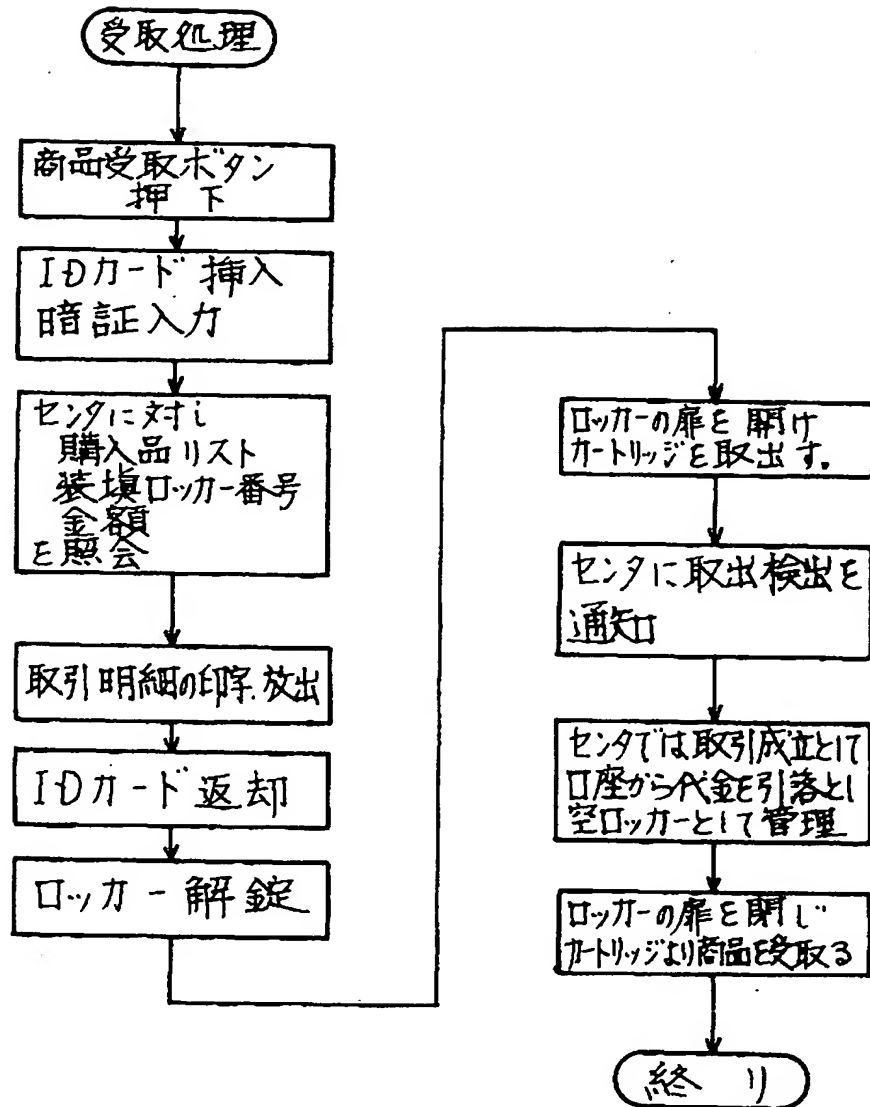 受取処理
商品受取ボタン
押下
IDカード挿入
暗証入力
センタに対し
購入品リスト
装填ロッカー番号
金額
を照会
取引明細の印字.放出
IDカード返却
ロッカー解錠
ロッカーの扉を開け
カートリッジを取出す.
センタに取出検出を
通知
センタでは取引成立として
口座から代金を引落とし
空ロッカーとして管理
ロッカーの扉を閉じ
カートリッジより商品を受取る
終り